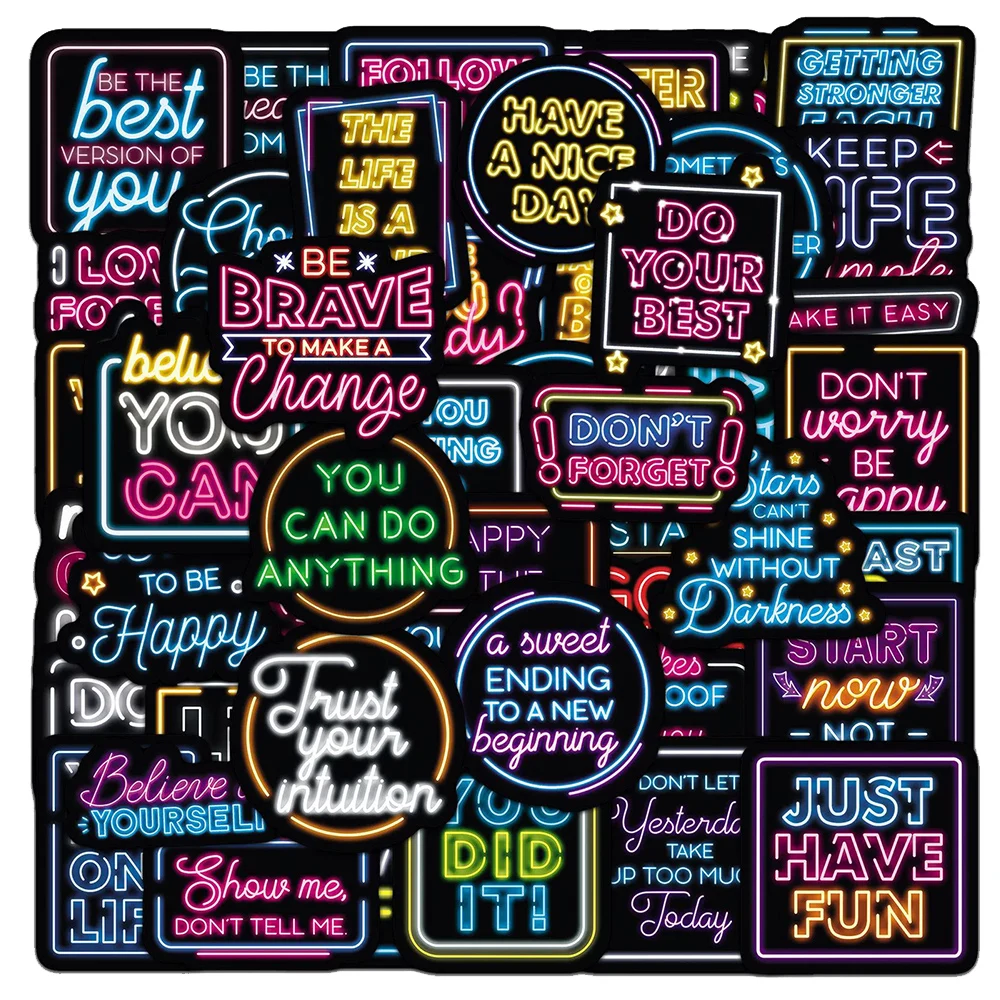 BE THE
best
VERSION OF
you
BE THE
FOLLOW
HAVE
A NICE
DAY
GETTING
STRONGER
EACH
THE
LIFE
IS A
KEEP
LIFE
simple
DO
YOUR
BEST
I LOV
BE
BRAVE
TO MAKE A
Change
TAKE IT EASY
believe
YOU
CAN
YOU
DON'T
FORGET
DON'T
worry
BE
happy
YOU
CAN DO
ANYTHING
Stars
CAN'T
SHINE
WITHOUT
Darkness
TO BE
Happy
Trust
your
intuition
a sweet
ENDING
TO A NEW
beginning
START
now
NOT
Believe
YOURSELF
ON
LIF
Show me,
DON'T TELL ME.
YOU
DID
IT!
DON'T LET
Yesterda
TAKE
UP TOO MUC
Today
JUST
HAVE
FUN